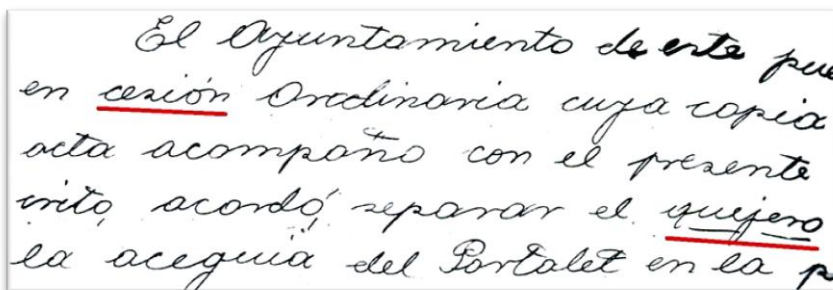 El Ayuntamiento de este pue
en cesión Ordinaria cuya copia
acta acompaño con el presente
crito, acordó, separar el quejero
la acequia del Portalet en la p